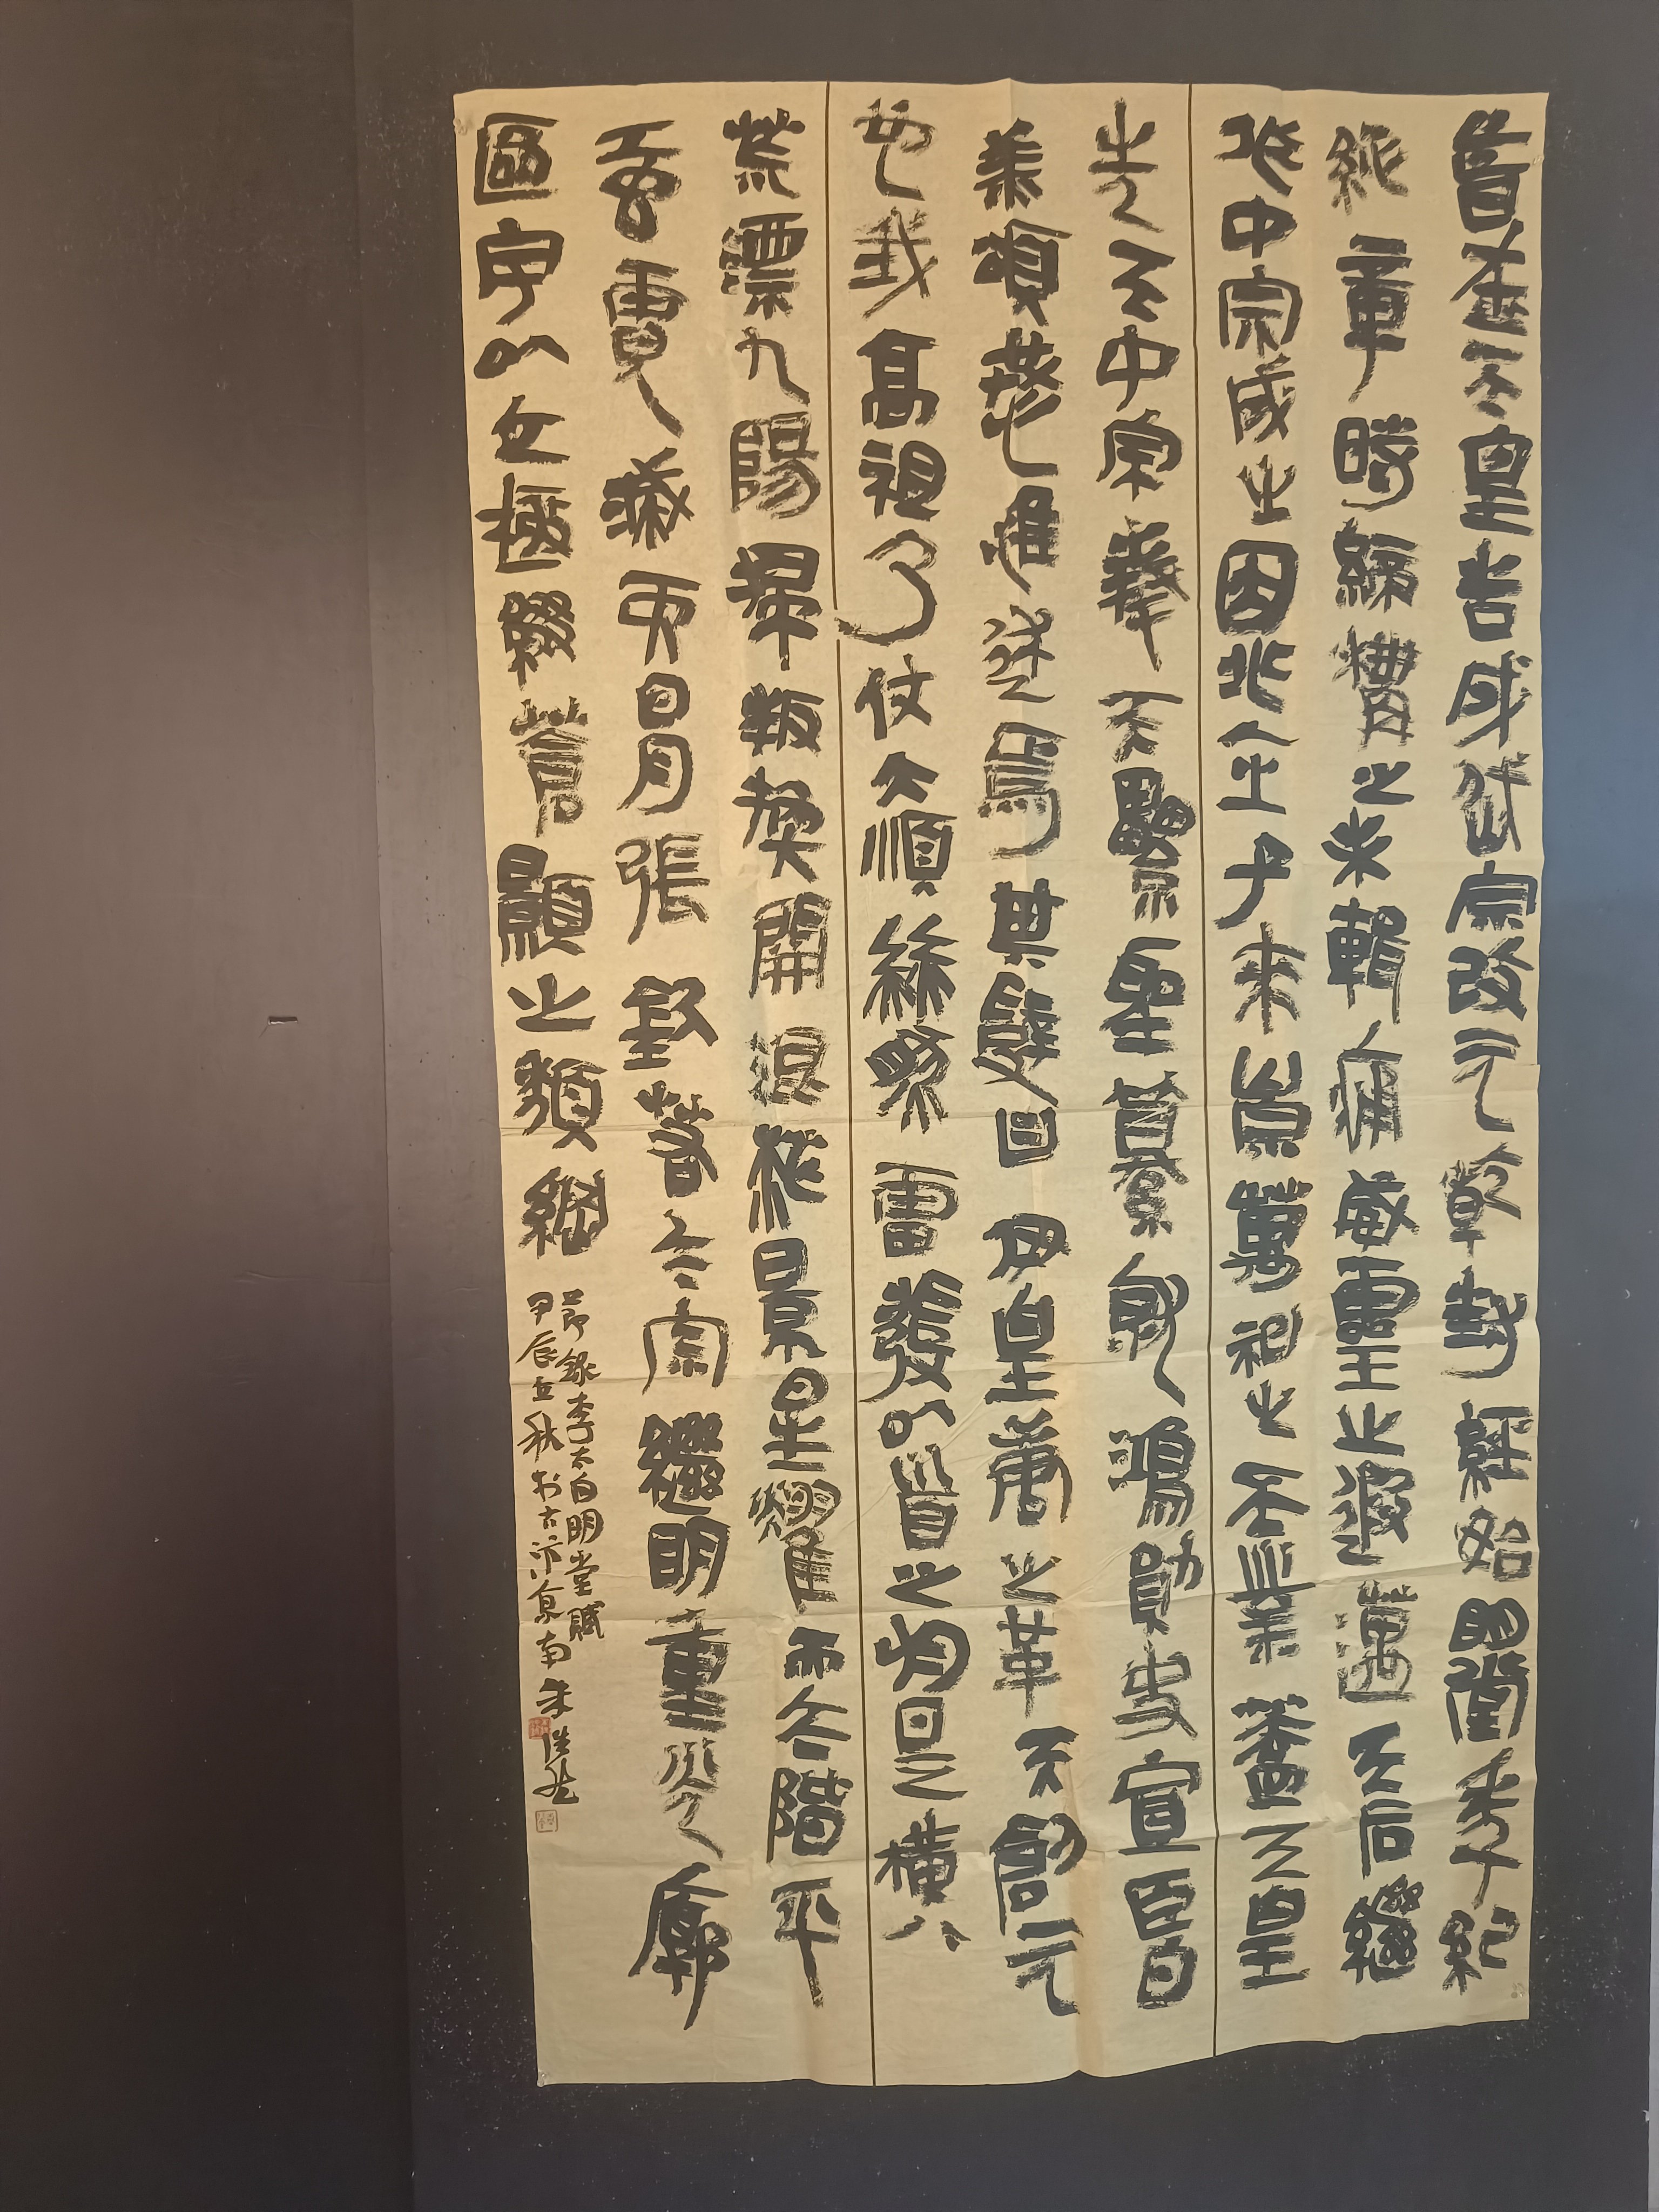 昔在天皇告成岱宗改元乾封經始明堂年紀
總章時締構之未輯痛威靈之遐邁天后繼
作中宗成之因兆人之子來崇萬祀之丕業蓋天皇
先天中宗奉天累聖纂就鴻勛克宣臣白
美頌恭惟述焉其辭曰伊皇唐之革天創元
也我高祖乃仗大順赫然雷發以首之於是橫八
荒漂九陽掃叛換開混茫景星耀而太階平
虹霓滅而日月張欽若太宗繼明重光廓
區宇以立極綴蒼顥之頹綱
節錄李太白明堂賦
甲辰立秋於古汴京南朱